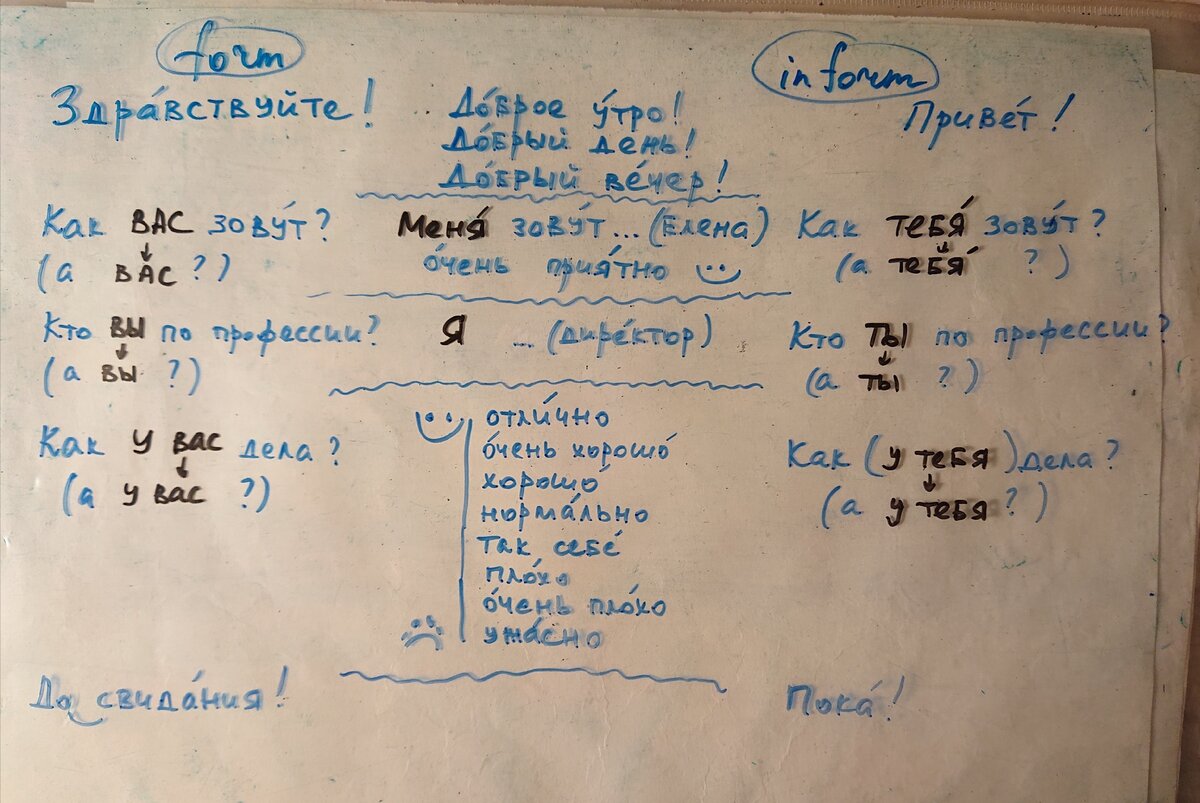 form
inform
Здра́вствуйте!
До́брое у́тро!
До́брый день!
До́брый ве́чер!
Приве́т!
Как ВАС зову́т?
(а ВАС?)
Меня́ зову́т... (Елена)
о́чень прия́тно
Как тебя́ зову́т?
(а тебя́ ?)
Кто вы по профессии?
(а вы ?)
Я ... (дире́ктор)
Кто ты по профессии?
(а ты ?)
Как у вас дела?
(а у вас ?)
отли́чно
о́чень хорошо́
хорошо́
норма́льно
так себе́
пло́хо
о́чень пло́хо
ужа́сно
Как (у тебя) дела?
(а у тебя ?)
До свида́ния!
Пока́!